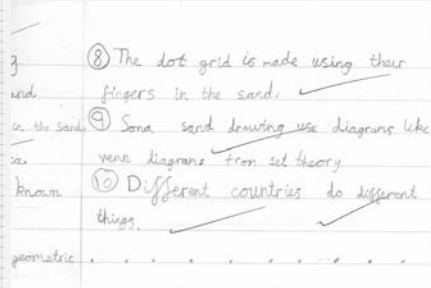 g
and
in the sand.
ca.
known
geometric
⑧ The dot grid is made using their
fingers in the sand.
⑨ Sona sand drawing use diagrams like
venn diagrams from set theory
⑩ Different countries do different
things.